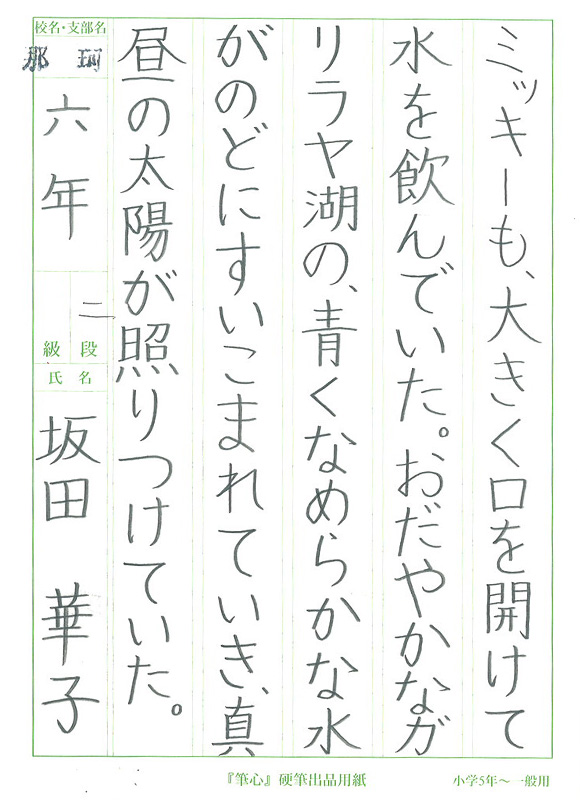 ミッキーも、大きく口を開けて
水を飲んでいた。おだやかなガ
リラヤ湖の、青くなめらかな水
がのどにすいこまれていき、真
昼の太陽が照りつけていた。
校名・支部名
那珂
六年
二
段
級
氏名
坂田 華子
『筆心』硬筆出品用紙
小学5年～一般用